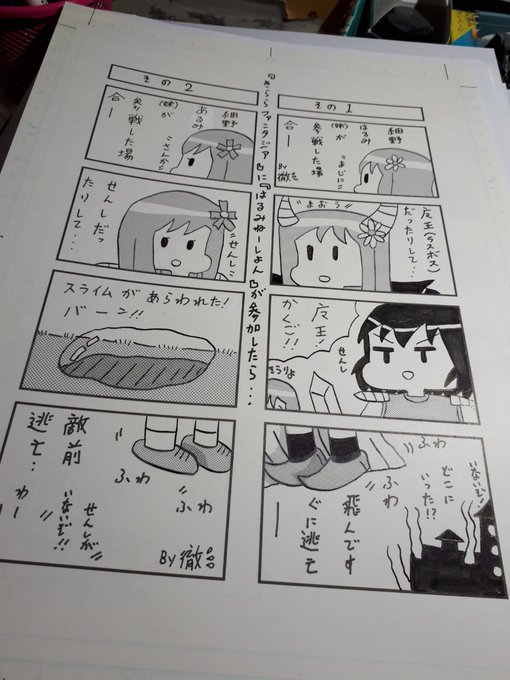 『きららファンタジア』に『はるみねーしょん』が参加したら…
その1
細野
はるみ
(姉)が
参戦した場
合ー
By 徹
まおう
魔王(ラスボス)
だったりして…
魔王!
かくご!
せんし
そうりょ
いないぞ!
どこに
いった!?
ふわ
ふわ
飛んです
ぐに逃亡
ー
その2
細野
あるみ
(妹)が
参戦した場
合ー
さんか
せんしだっ
たりして…
せんし
スライムがあらわれた!
バーン!!
ふわ
ふわ
敵前
逃亡…
せんしが
いないぞ!!
わー
By 徹